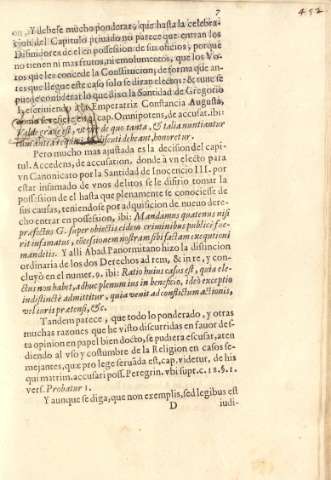 7
452
on, Y debese mucho ponderar, que hasta la celebra-
cion del Capitulo priuado no parece que entran los
Difinidores de el en possession de sus oficios; porque
no tienen ni mas frutos, ni emolumentos, que los Vo-
tos que les concede la Constitucion, de forma que an-
tes que llegue este caso solo se diran electos: & tunc se
puede considerar lo que dixo la Santidad de Gregorio
escriuiendo à la Emperatriz Constancia Augusta,
cap. Omnipotens, de accusat. ibi:
Valde graue est, vt vir de quo tanta, & talia nuntiantur
debeant, honoretur.
Pero mucho mas ajustada es la decision del capi-
tul. Accedens, de accusation. donde à vn electo para
vn Canonicato por la Santidad de Inocencio III. por
estar infamado de vnos delitos se le difirio tomar la
possession de el hasta que plenamente se conociesse de
sus causas, teniendose por adquisicion de nueuo dere-
cho entrar en possession, ibi: Mandamus quatenus nisi
præfectus G. super obiectis eidem criminibus publicè fue-
rit infamatus, concessionem nostram sibi factam exequutioni
mandetis. Y alli Abad Panormitano hizo la distincion
ordinaria de los dos Derechos ad rem, & in re, y con-
cluyò en el numer. 9. ibi: Ratio huius casus est, quia ele-
ctus non habet, adhuc plenum ius in beneficio, ideò exceptio
indistinctè admittitur, quia venit ad constictum actionis,
vel iuris prætensi, &c.
Tandem parece, que todo lo ponderado, y otras
muchas razones que he visto discurridas en fauor des-
ta opinion en papel bien docto, se pudiera escusar, aten
diendo al vso y costumbre de la Religion en casos se-
mejantes, quæ pro lege seruãda est, cap. videtur, de his
qui matrim. accusari poss. Peregrin. vbi supr. c. 18. §. 1.
vers. Probatur 1.
Y aunque se diga, que non exemplis, sed legibus est
D
iudi-